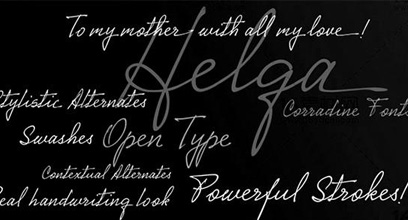 To my mother with all my love!
Helga
Stylistic Alternates
Corradine Fonts
Swashes
Open Type
Contextual Alternates
Real handwriting look
Powerful Strokes!